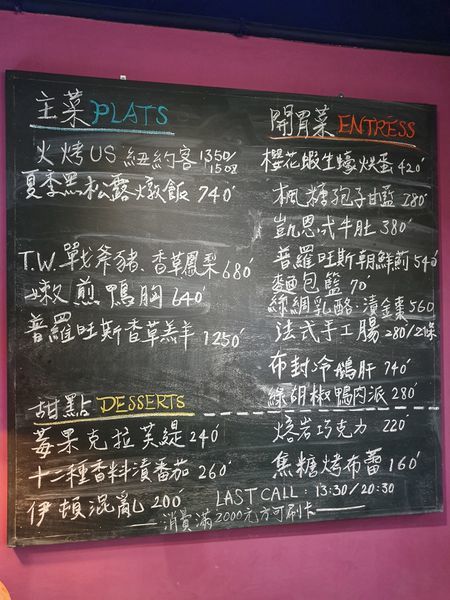 主菜 PLATS
火烤US 紐約客 1350/150g
夏季黑松露燉飯 740
T.W.戰斧豬、香草鳳梨 680
嫩煎鴨胸 640
普羅旺斯香草羔羊 1250
開胃菜 ENTRESS
櫻花蝦生蠔烘蛋 420
楓糖孢子甘藍 180
凱恩式牛肚 380
普羅旺斯朝鮮薊 540
麵包籃 70
絲綢乳酪、漬金棗 560
法式手工腸 280/2條
布封冷鵝肝 740
綠胡椒鴨肉派 280
甜點 DESSERTS
莓果克拉芙緹 240
十二種香料漬番茄 260
伊頓混亂 200
焙岩巧克力 220
焦糖烤布蕾 160
LAST CALL : 13:30 / 20:30
消費滿2000元方可刷卡